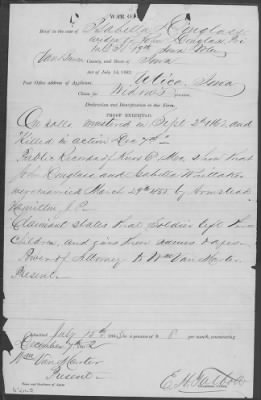 WAR
Brief in the case of Isabella Douglass,
widow of John Douglass, Pri
19th Iowa Vols
Van Buren County, and State of Iowa
Act of July 14, 1862.
Post Office address of Applicant: Utica, Iowa
Claim for Widow's Pension
Declaration and Identification in due Form.
PROOF EXHIBITED.
On rolls mustered in Sept 2d 1862 and
"Killed in action Dec 7th"
Public Records of Co. Mo. show that
John Douglass and Isabella
were married March 29th 1855 by Armstead
Hamilton J.P.
Claimant states that soldier left
children, and gives their names & ages.
Power of Attorney to Wm Van Marter
Present.
July 18th 3 a pension of $ 8 per month, commencing
December 7th 1862
Wm Van Marter
Present